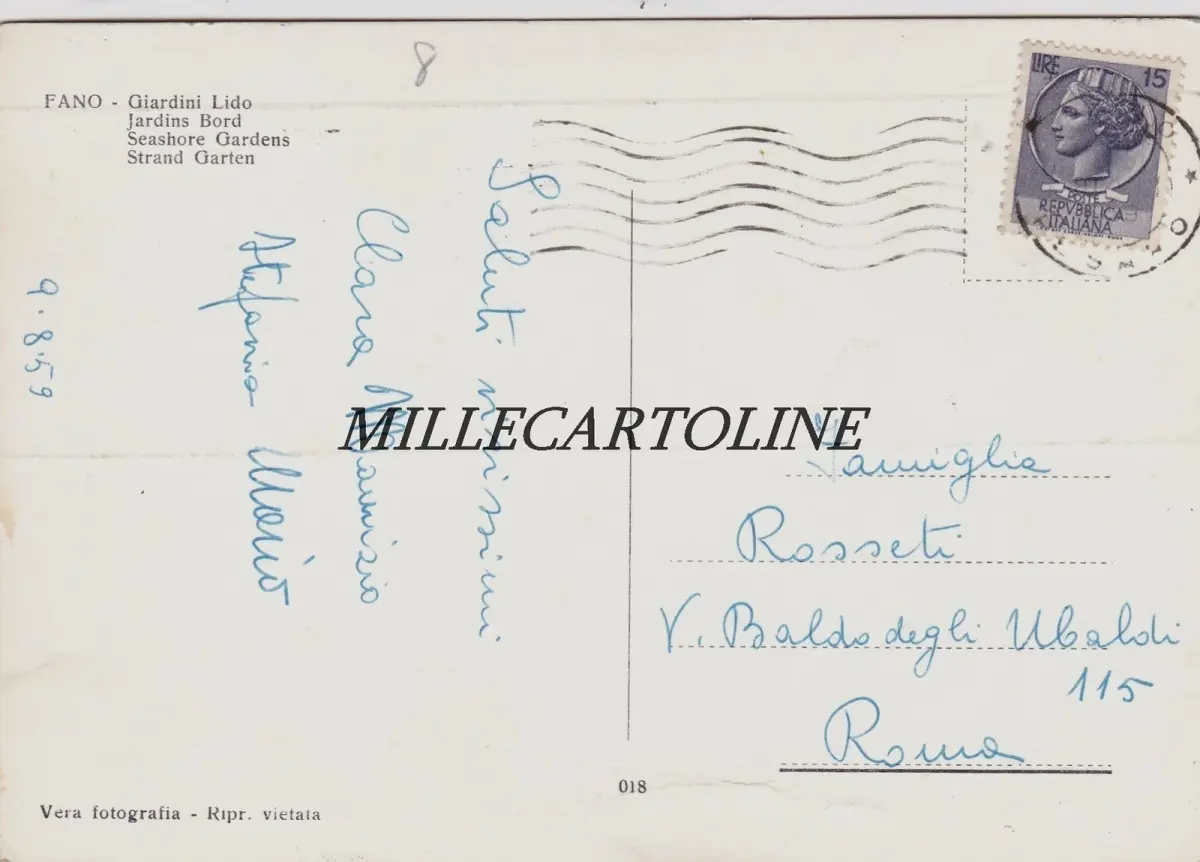 8
FANO - Giardini Lido
Jardins Bord
Seashore Gardens
Strand Garten
LIRE 15
POSTE
REPVBBLICA
ITALIANA
Saluti vivissimi
Clara Maurizio
Stefania Mario
9.8.59
MILLECARTOLINE
Famiglia
Rosseti
V. Baldo degli Ubaldi
115
Roma
018
Vera fotografia - Ripr. vietata